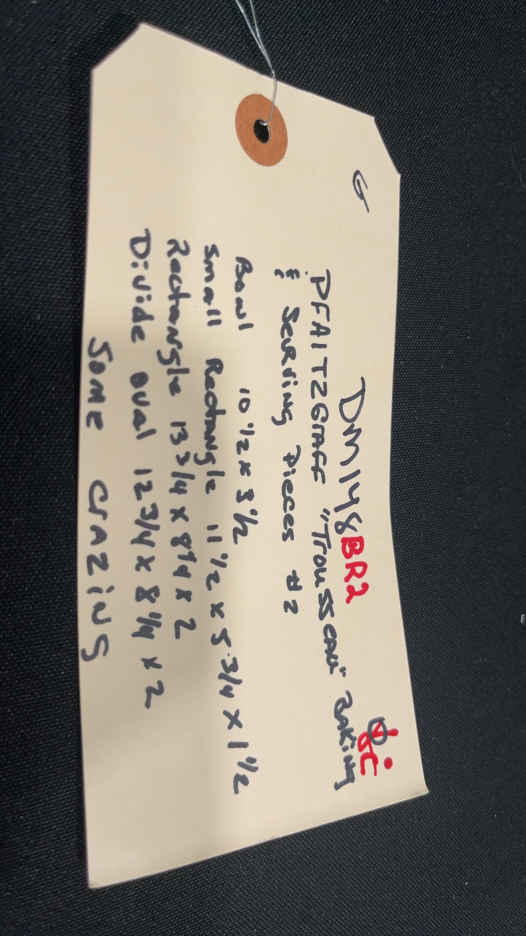 G
DM148BR2
PFAITZGRAFF "TROUSSEAU" BAKING
& SERVING PIECES #2
BOWL 10 1/2 x 3 1/2
Small Rectangle 11 1/2 x 5 3/4 x 1 1/2
Rectangle 13 3/4 x 8 1/4 x 2
Divide oval 12 3/4 x 8 1/4 x 2
SOME CRAZING